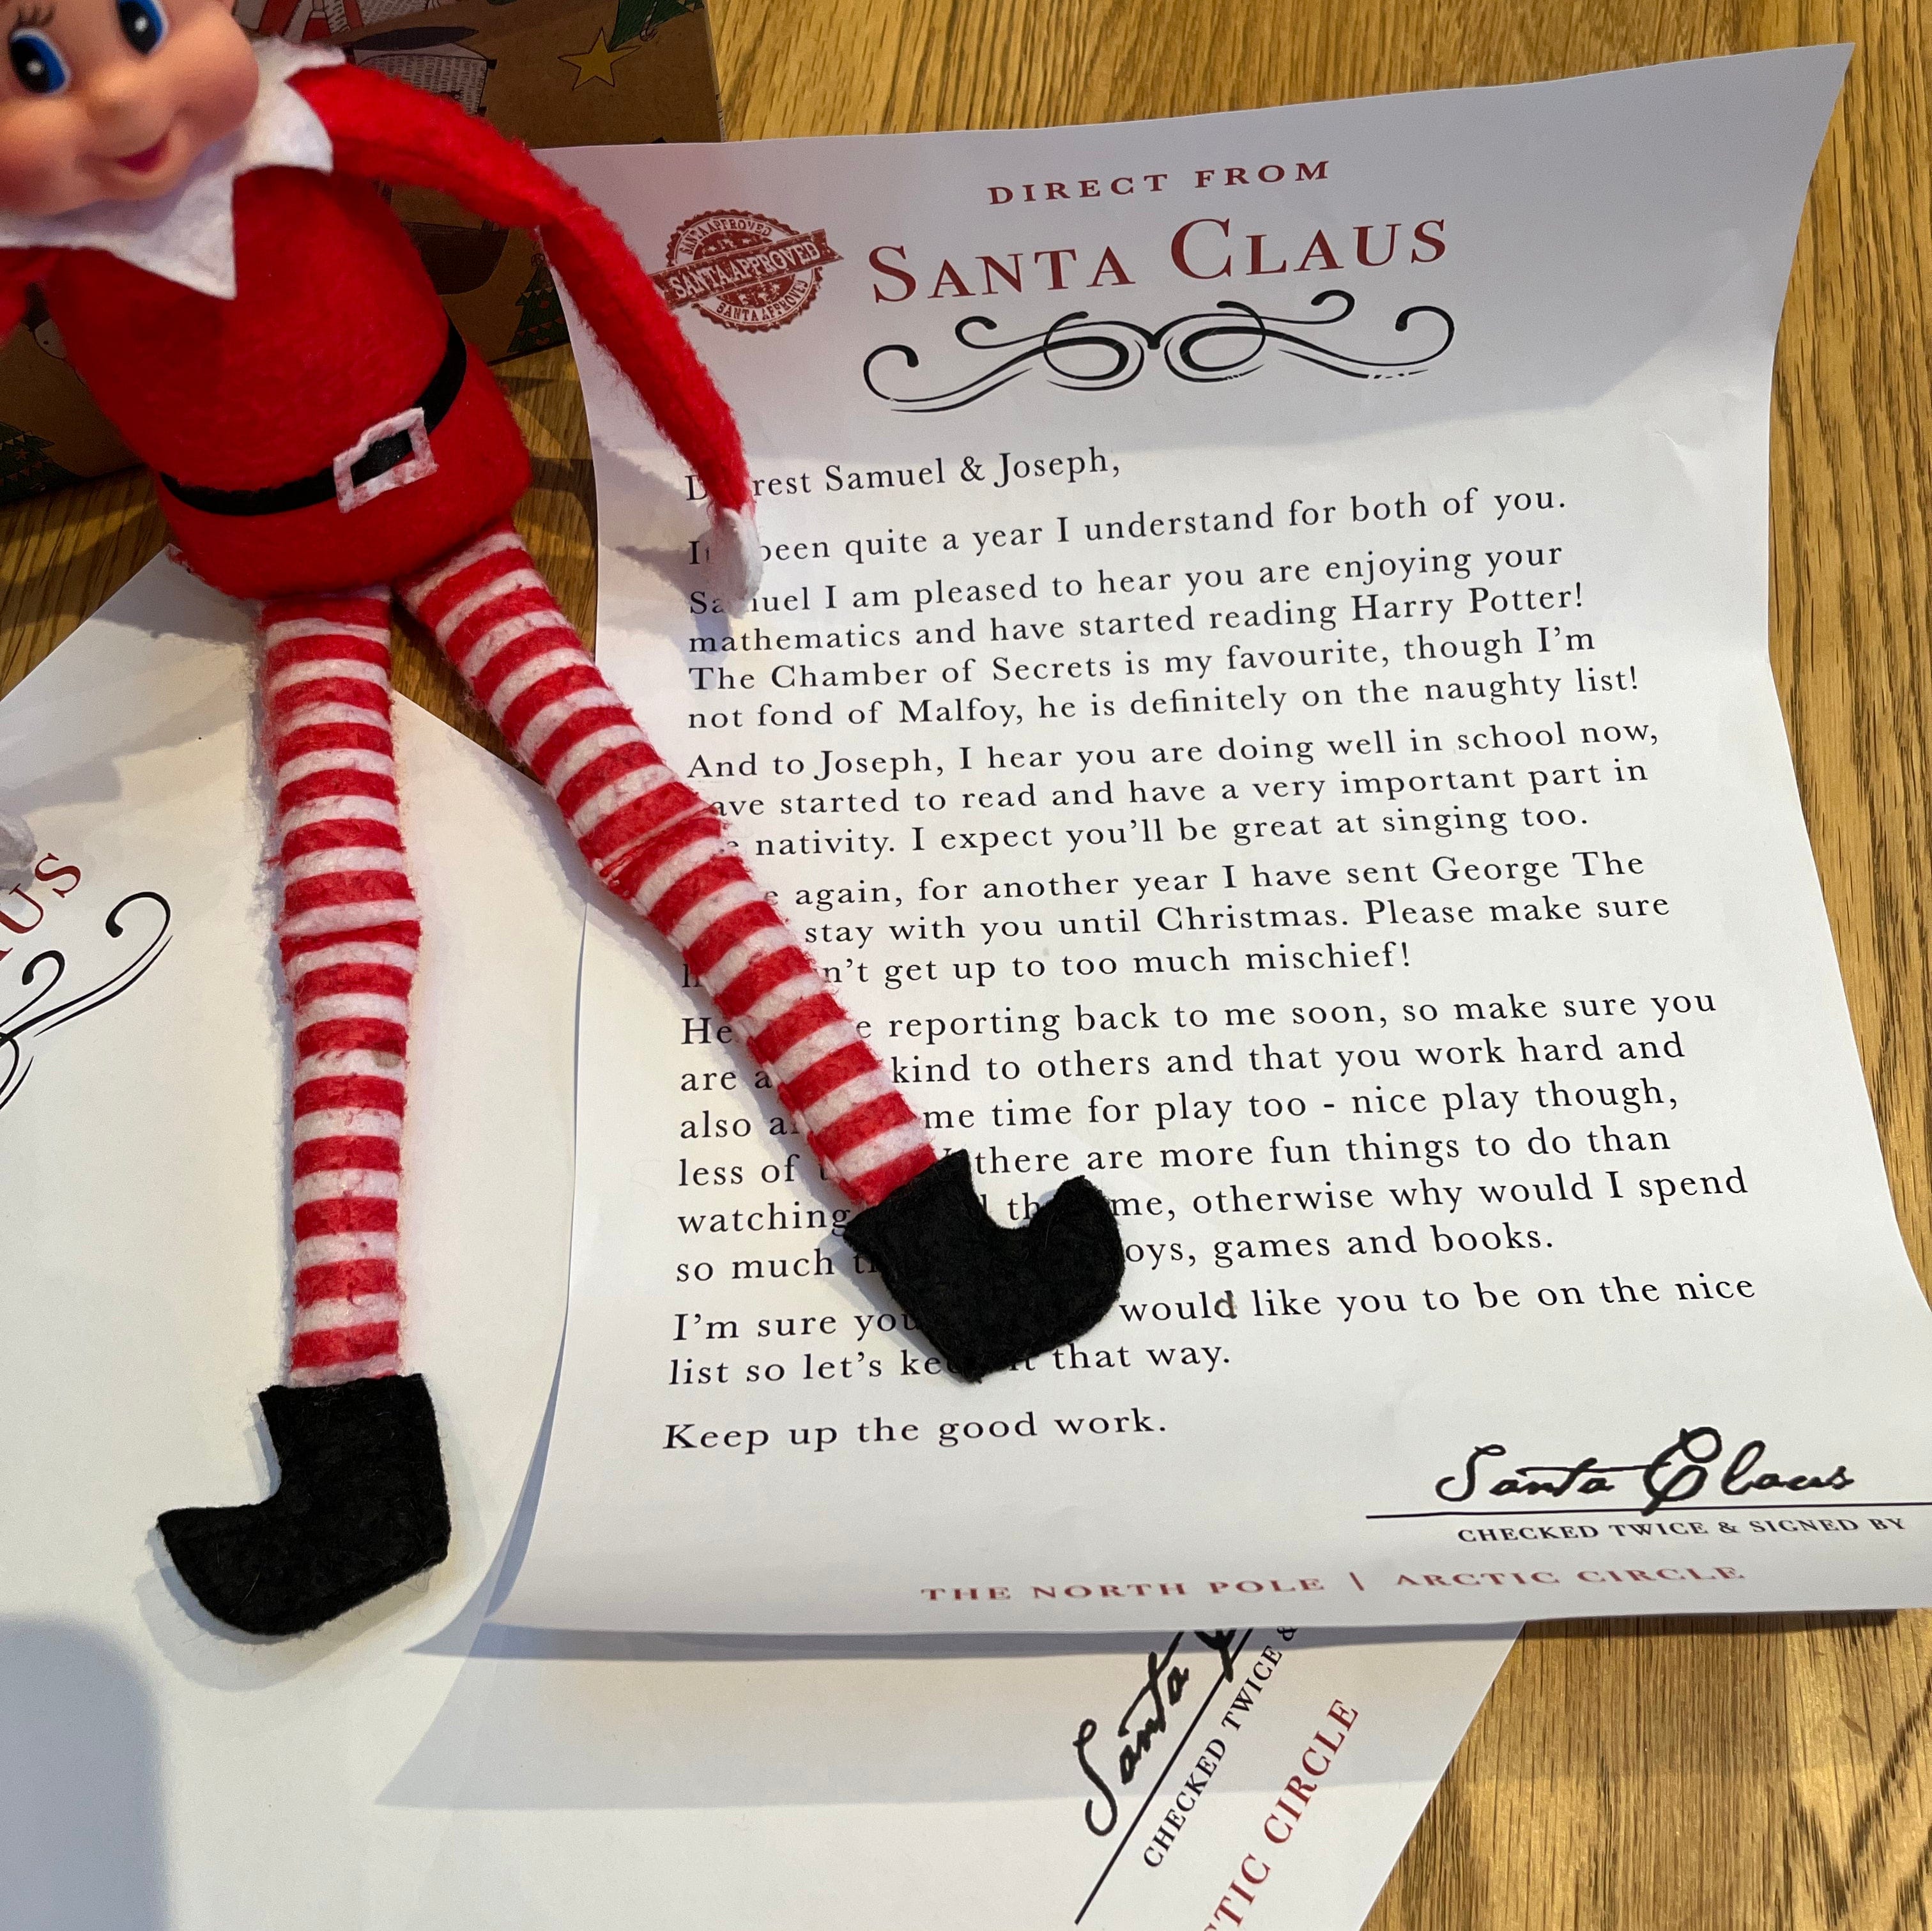 DIRECT FROM
SANTA CLAUS
SANTA APPROVED
SANTA APPROVED
SANTA APPROVED
Samuel & Joseph,
been quite a year I understand for both of you.
I am pleased to hear you are enjoying your
mathematics and have started reading Harry Potter!
The Chamber of Secrets is my favourite, though I'm
not fond of Malfoy, he is definitely on the naughty list!
And to Joseph, I hear you are doing well in school now,
started to read and have a very important part in
nativity. I expect you'll be great at singing too.
again, for another year I have sent George The
stay with you until Christmas. Please make sure
get up to too much mischief!
reporting back to me soon, so make sure you
are kind to others and that you work hard and
also time for play too - nice play though,
less of there are more fun things to do than
watching otherwise why would I spend
so much games and books.
I'm sure would like you to be on the nice
list so let's that way.
Keep up the good work.
Santa Claus
CHECKED TWICE & SIGNED BY
THE NORTH POLE | ARCTIC CIRCLE
Santa
CHECKED TWICE &
CIRCLE